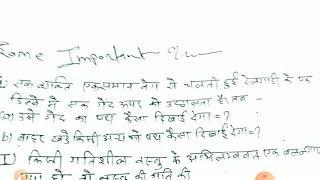 Some Important
एक व्यक्ति एक समान वेग से चलती हुई रेलगाड़ी के एक
डिब्बे में एक गेंद ऊपर को उछालता है। तब -
(a) उसे गेंद का पथ कैसा दिखाई देगा = ?
b) बाहर खड़े किसी अन्य को पथ कैसा दिखाई देगा = ?
I) किसी गतिशील वस्तु के अभिलम्बवत एक बल
वस्तु की गति की